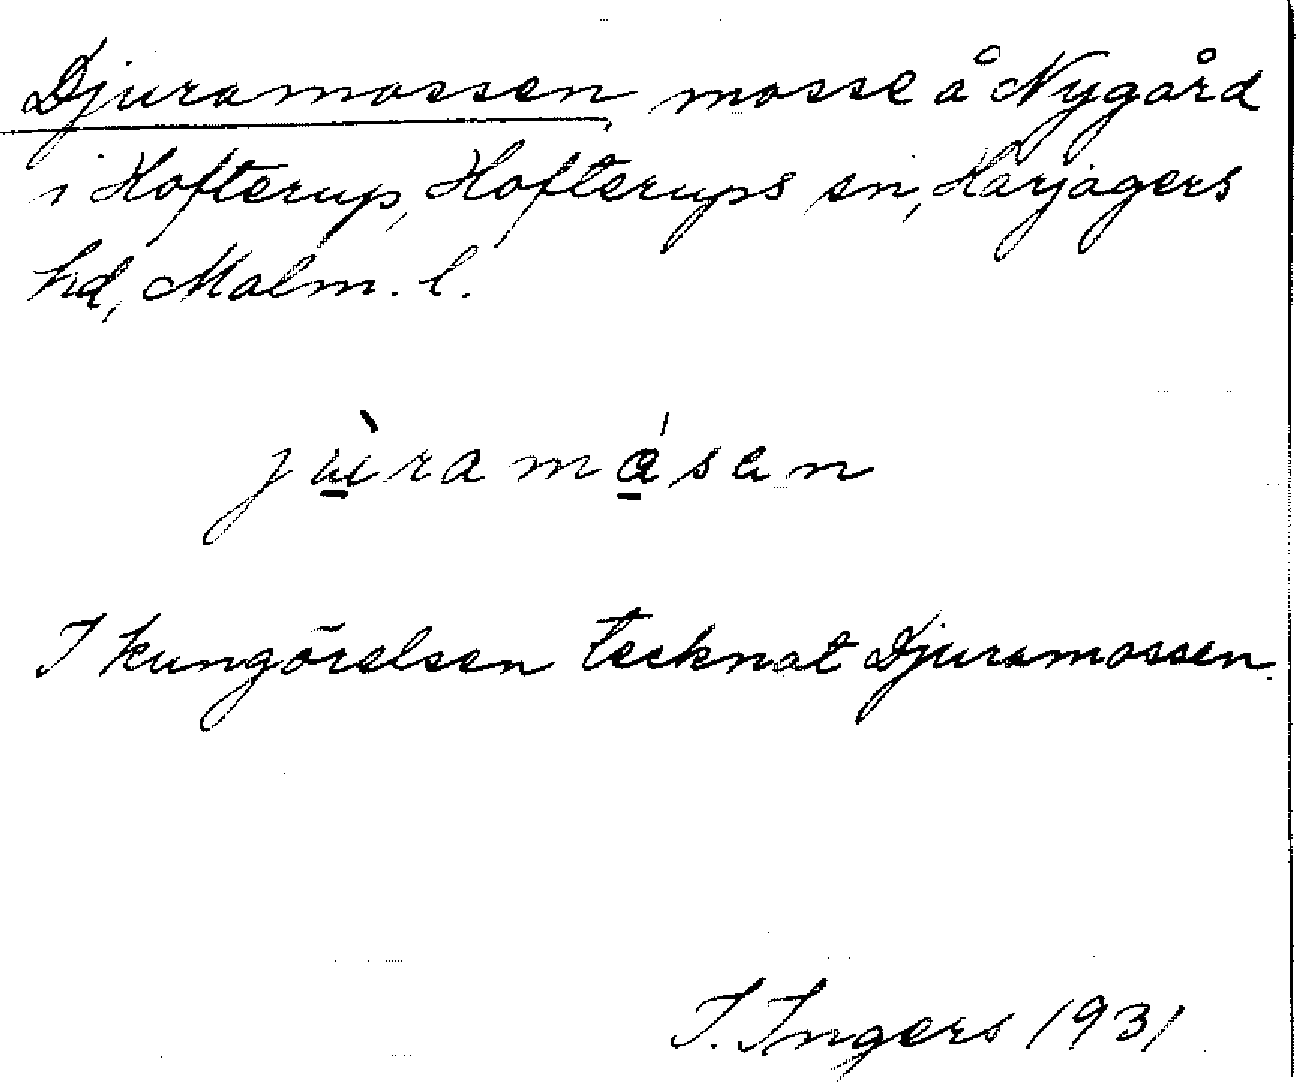 Djuramossen, mosse å Nygård
i Hofterup, Hofterups sn, Harjagers
hd, Malm. l.
jùramásen
I kungörelsen tecknat Djuramossen.
I. Ingers 1931